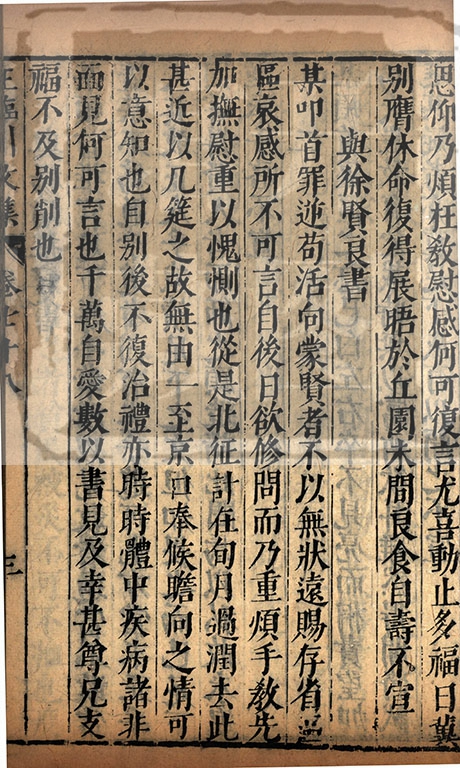 思仰乃煩枉敎慰感何可復言尤喜動止多福日冀
別膺休命復得展晤於丘園未間良食自壽不宣
與徐賢良書
某叩首罪逆茍活向蒙賢者不以無狀遠賜存省區
區哀感所不可言自後日欲修問而乃重煩手敎先
加撫慰重以愧惻也從是北征計在旬月過潤去此
甚近以几筵之故無由一至京口奉候瞻向之情可
以意知也自别後不復治禮亦時時體中疾病諸非
面見何可言也千萬自愛數以書見及幸甚尊兄支
福不及别削也
王臨川文集 卷七十八 三